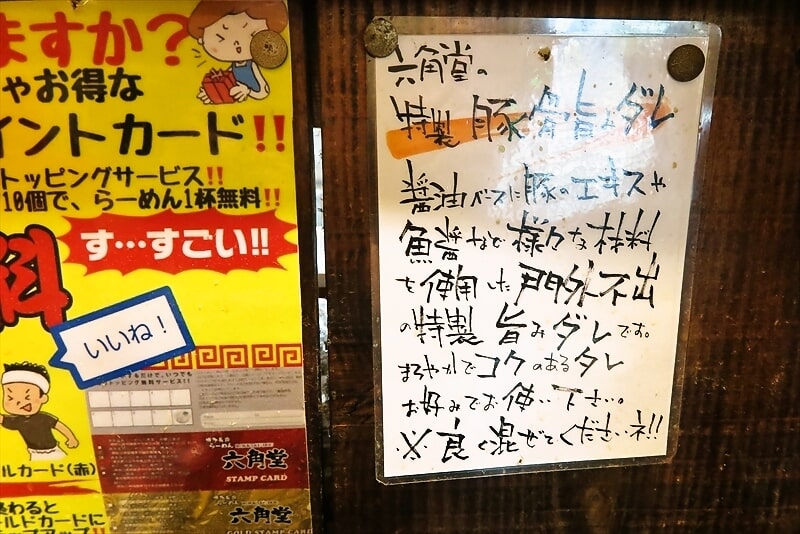 ますか?
ゃお得な
イントカード!!
トッピングサービス!!
10個で、らーめん1杯無料!!
す…すごい!!
料
いいね!
るだけで、いつでも
トッピング無料サービス!!
らーめん
六角堂
STAMP CARD
ルカード(赤)
六角堂
GOLD STAMP CARD
終わると
ールドカードに
ップアップ!!
六角堂の
特製 豚骨旨みダレ
醤油ベースに豚のエキスや
魚醤など様々な材料
を使用した門外不出
の特製 旨みダレです。
まろやかでコクのあるタレ
お好みでお使い下さい。
※良く混ぜてくださいネ!!